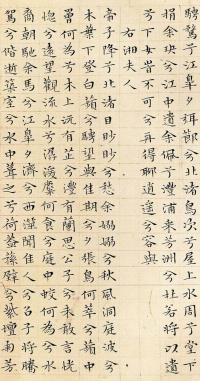 騁騖兮江皋夕弭節兮北渚鳥次兮屋上水周兮堂下
捐余玦兮江中遺余佩兮澧浦采芳洲兮杜若將以遺
兮下女旹不可兮再得聊逍遥兮容與
右湘夫人
帝子降兮北渚目眇眇兮愁余嫋嫋兮秋風洞庭波兮
木葉下登白薠兮騁望與佳期兮夕張鳥何萃兮蘋中
罾何為兮木上沅有芷兮澧有蘭思公子兮未敢言慌
惚兮遠望觀流水兮潺湲麋何食兮庭中蛟何為兮水
裔朝馳余馬兮江皋夕濟兮西澨聞佳人兮召予將騰
駕兮偕逝築室兮水中葺之兮荷蓋蓀壁兮紫壇匊芳